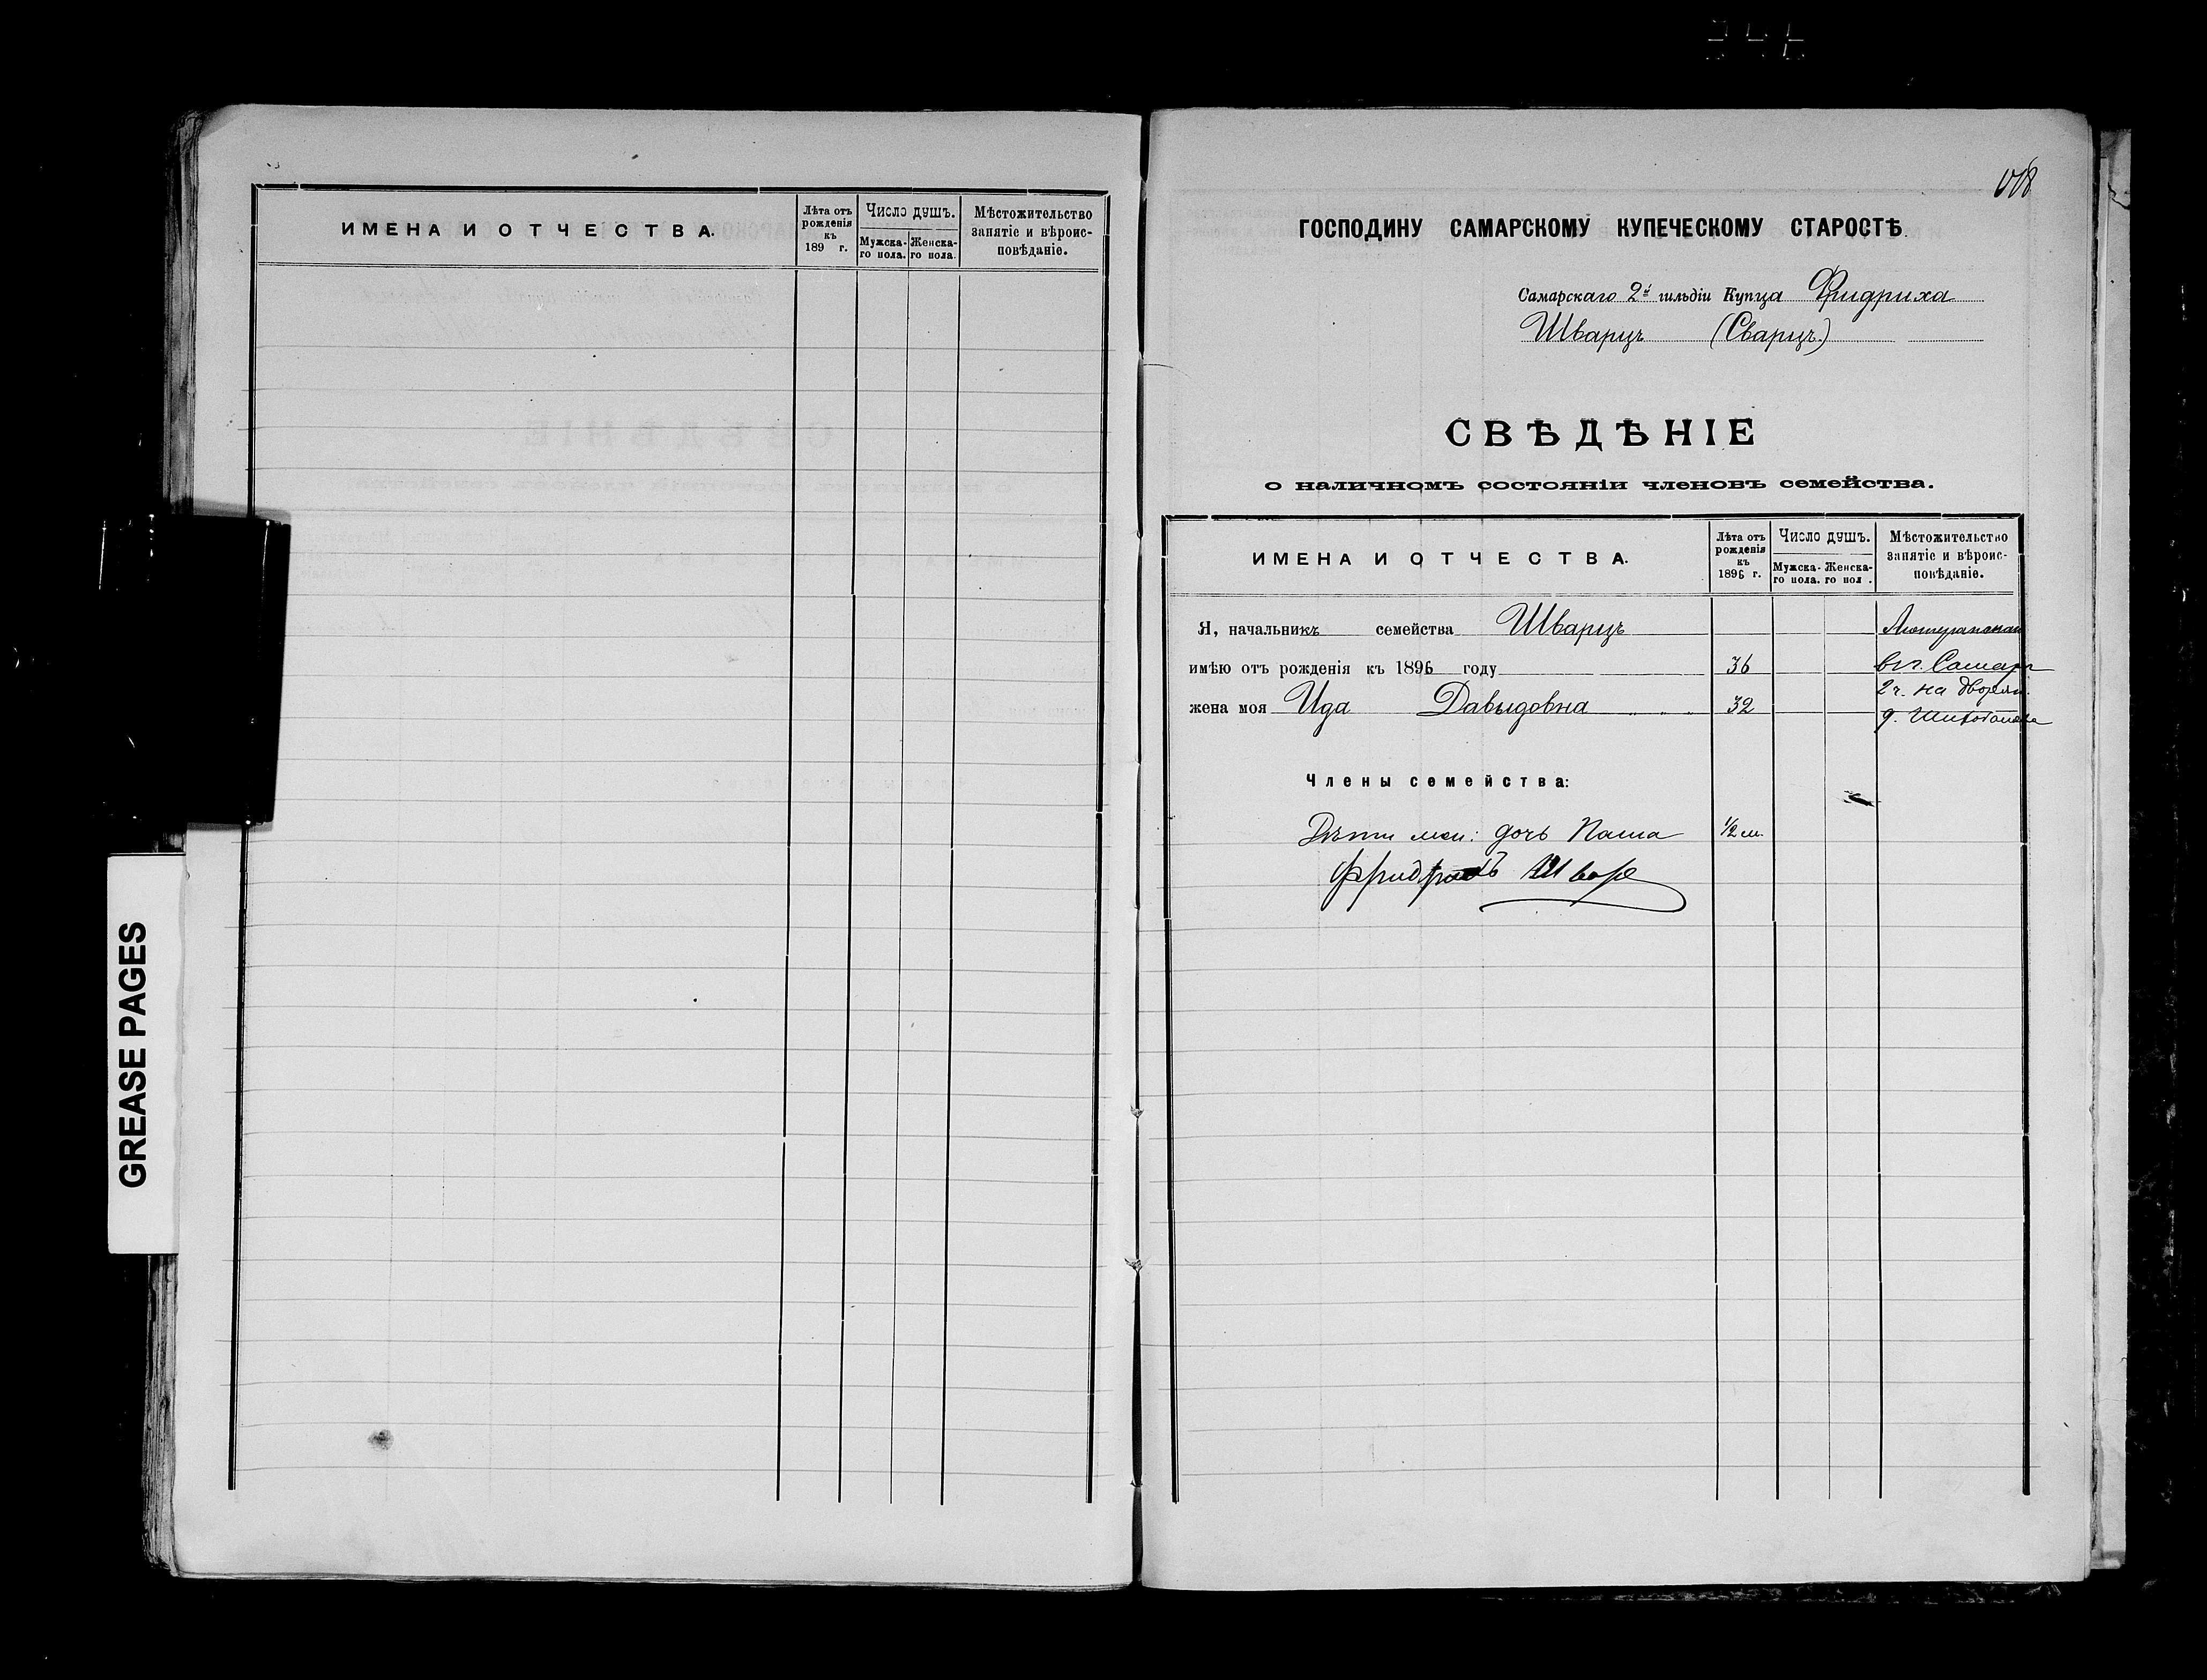 ИМЕНА И ОТЧЕСТВА.
Лѣта отъ рожденія къ 189 г.
Число душъ.
Мужска- го пола.
Женска- го пола.
Мѣстожительство занятіе и вѣроис- повѣданіе.
GREASE PAGES
ГОСПОДИНУ САМАРСКОМУ КУПЕЧЕСКОМУ СТАРОСТѢ.
Самарскаго 2й гильдіи Купца Фридриха
Шварцъ (Сварцъ)
СВѢДѢНІЕ
о наличномъ состояніи членовъ семейства.
ИМЕНА И ОТЧЕСТВА.
Лѣта отъ рожденія къ 1896 г.
Число душъ.
Мужска- го пола.
Женска- го пол .
Мѣстожительство занятіе и вѣроис- повѣданіе.
Я, начальникъ семейства Шварцъ
имѣю отъ рожденія къ 1896 году 36 въ г. Самарѣ
2 ч. на Дворян.
жена моя Ида Давыдовна 32
Члены семейства:
Дѣти мои: дочь Паша 1/2 м.
Фридрихъ Шварц